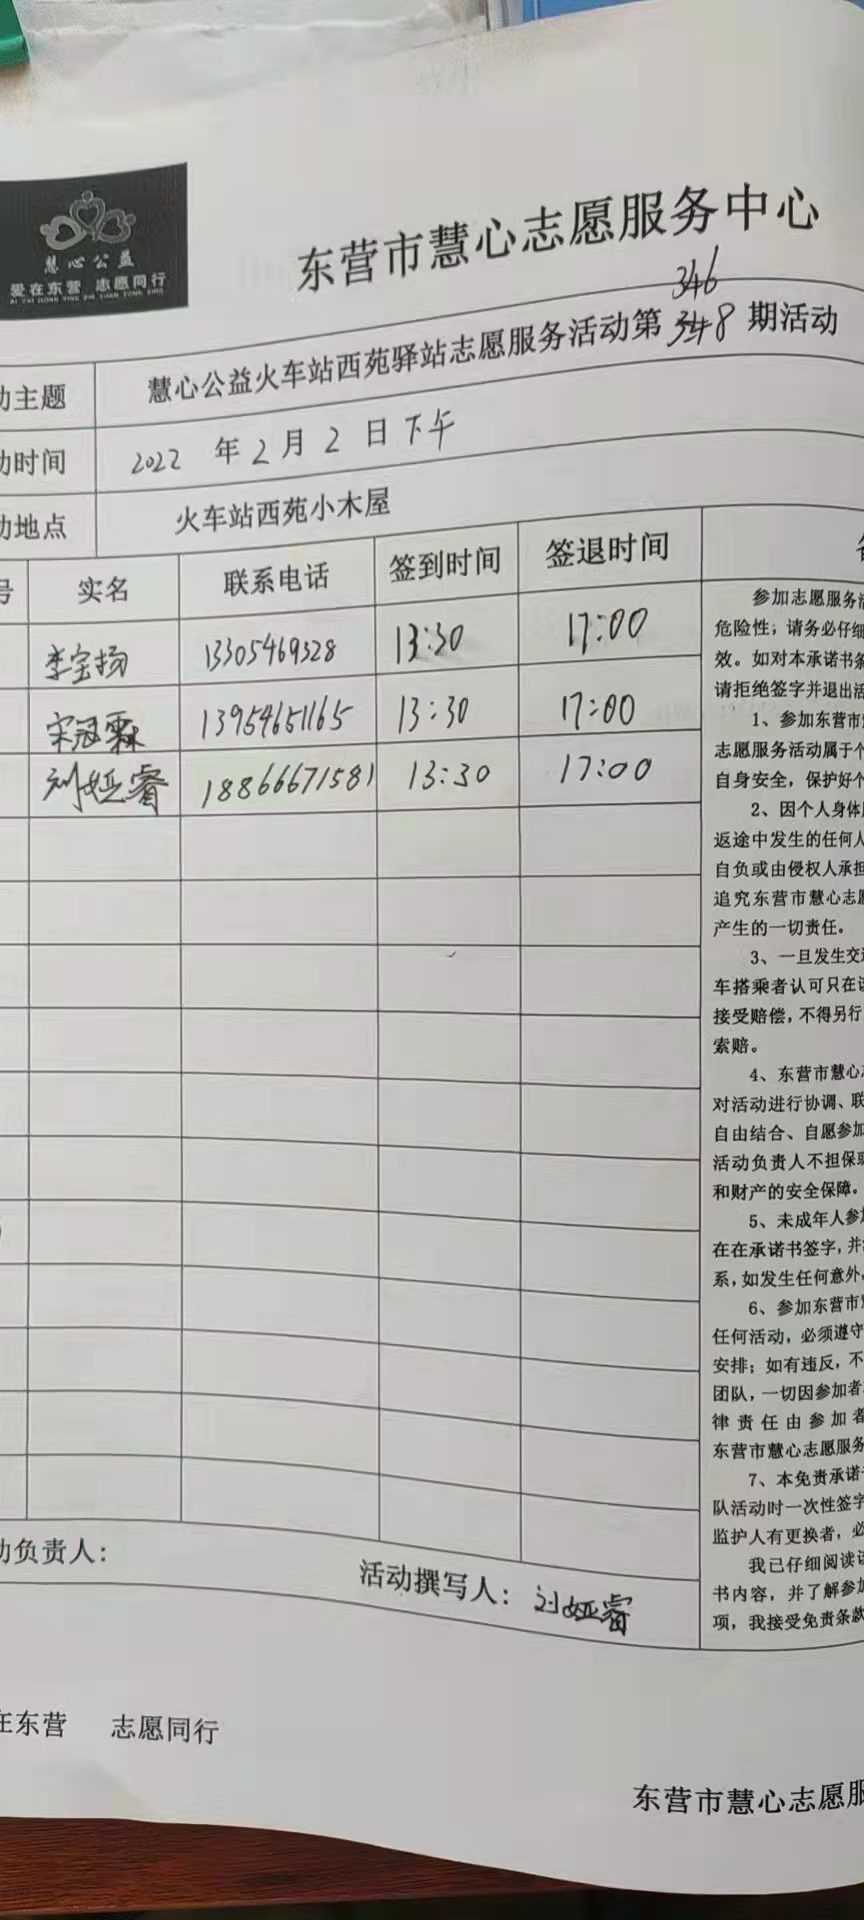 慧心公益
爱在东营 志愿同行
AI ZAI DONG YING ZHI YUAN TONG XING
东营市慧心志愿服务中心
346
动主题 慧心公益火车站西苑驿站志愿服务活动第348期活动
动时间 2022 年 2 月 2 日 下午
动地点 火车站西苑小木屋
号 实名 联系电话 签到时间 签退时间
李宝扬 13305469328 13:30 17:00
宋冠霖 13954651165 13:30 17:00
刘娅睿 18866671581 13:30 17:00
参加志愿服务活
危险性;请务必仔细
效。如对本承诺书条
请拒绝签字并退出活
1、参加东营市
志愿服务活动属于个
自身安全,保护好个
2、因个人身体
返途中发生的任何人
自负或由侵权人承担
追究东营市慧心志愿
产生的一切责任。
3、一旦发生交通
车搭乘者认可只在
接受赔偿,不得另行
索赔。
4、东营市慧心
对活动进行协调、联
自由结合、自愿参加
活动负责人不担保
和财产的安全保障。
5、未成年人参加
在在承诺书签字,并
系,如发生任何意外,
6、参加东营市
任何活动,必须遵守
安排;如有违反,不
团队,一切因参加者
律责任由参加者
东营市慧心志愿服务
7、本免责承诺
队活动时一次性签字
监护人有更换者,必
我已仔细阅读
书内容,并了解参加
项,我接受免责条款
动负责人: 活动撰写人:刘娅睿
在东营 志愿同行
东营市慧心志愿服